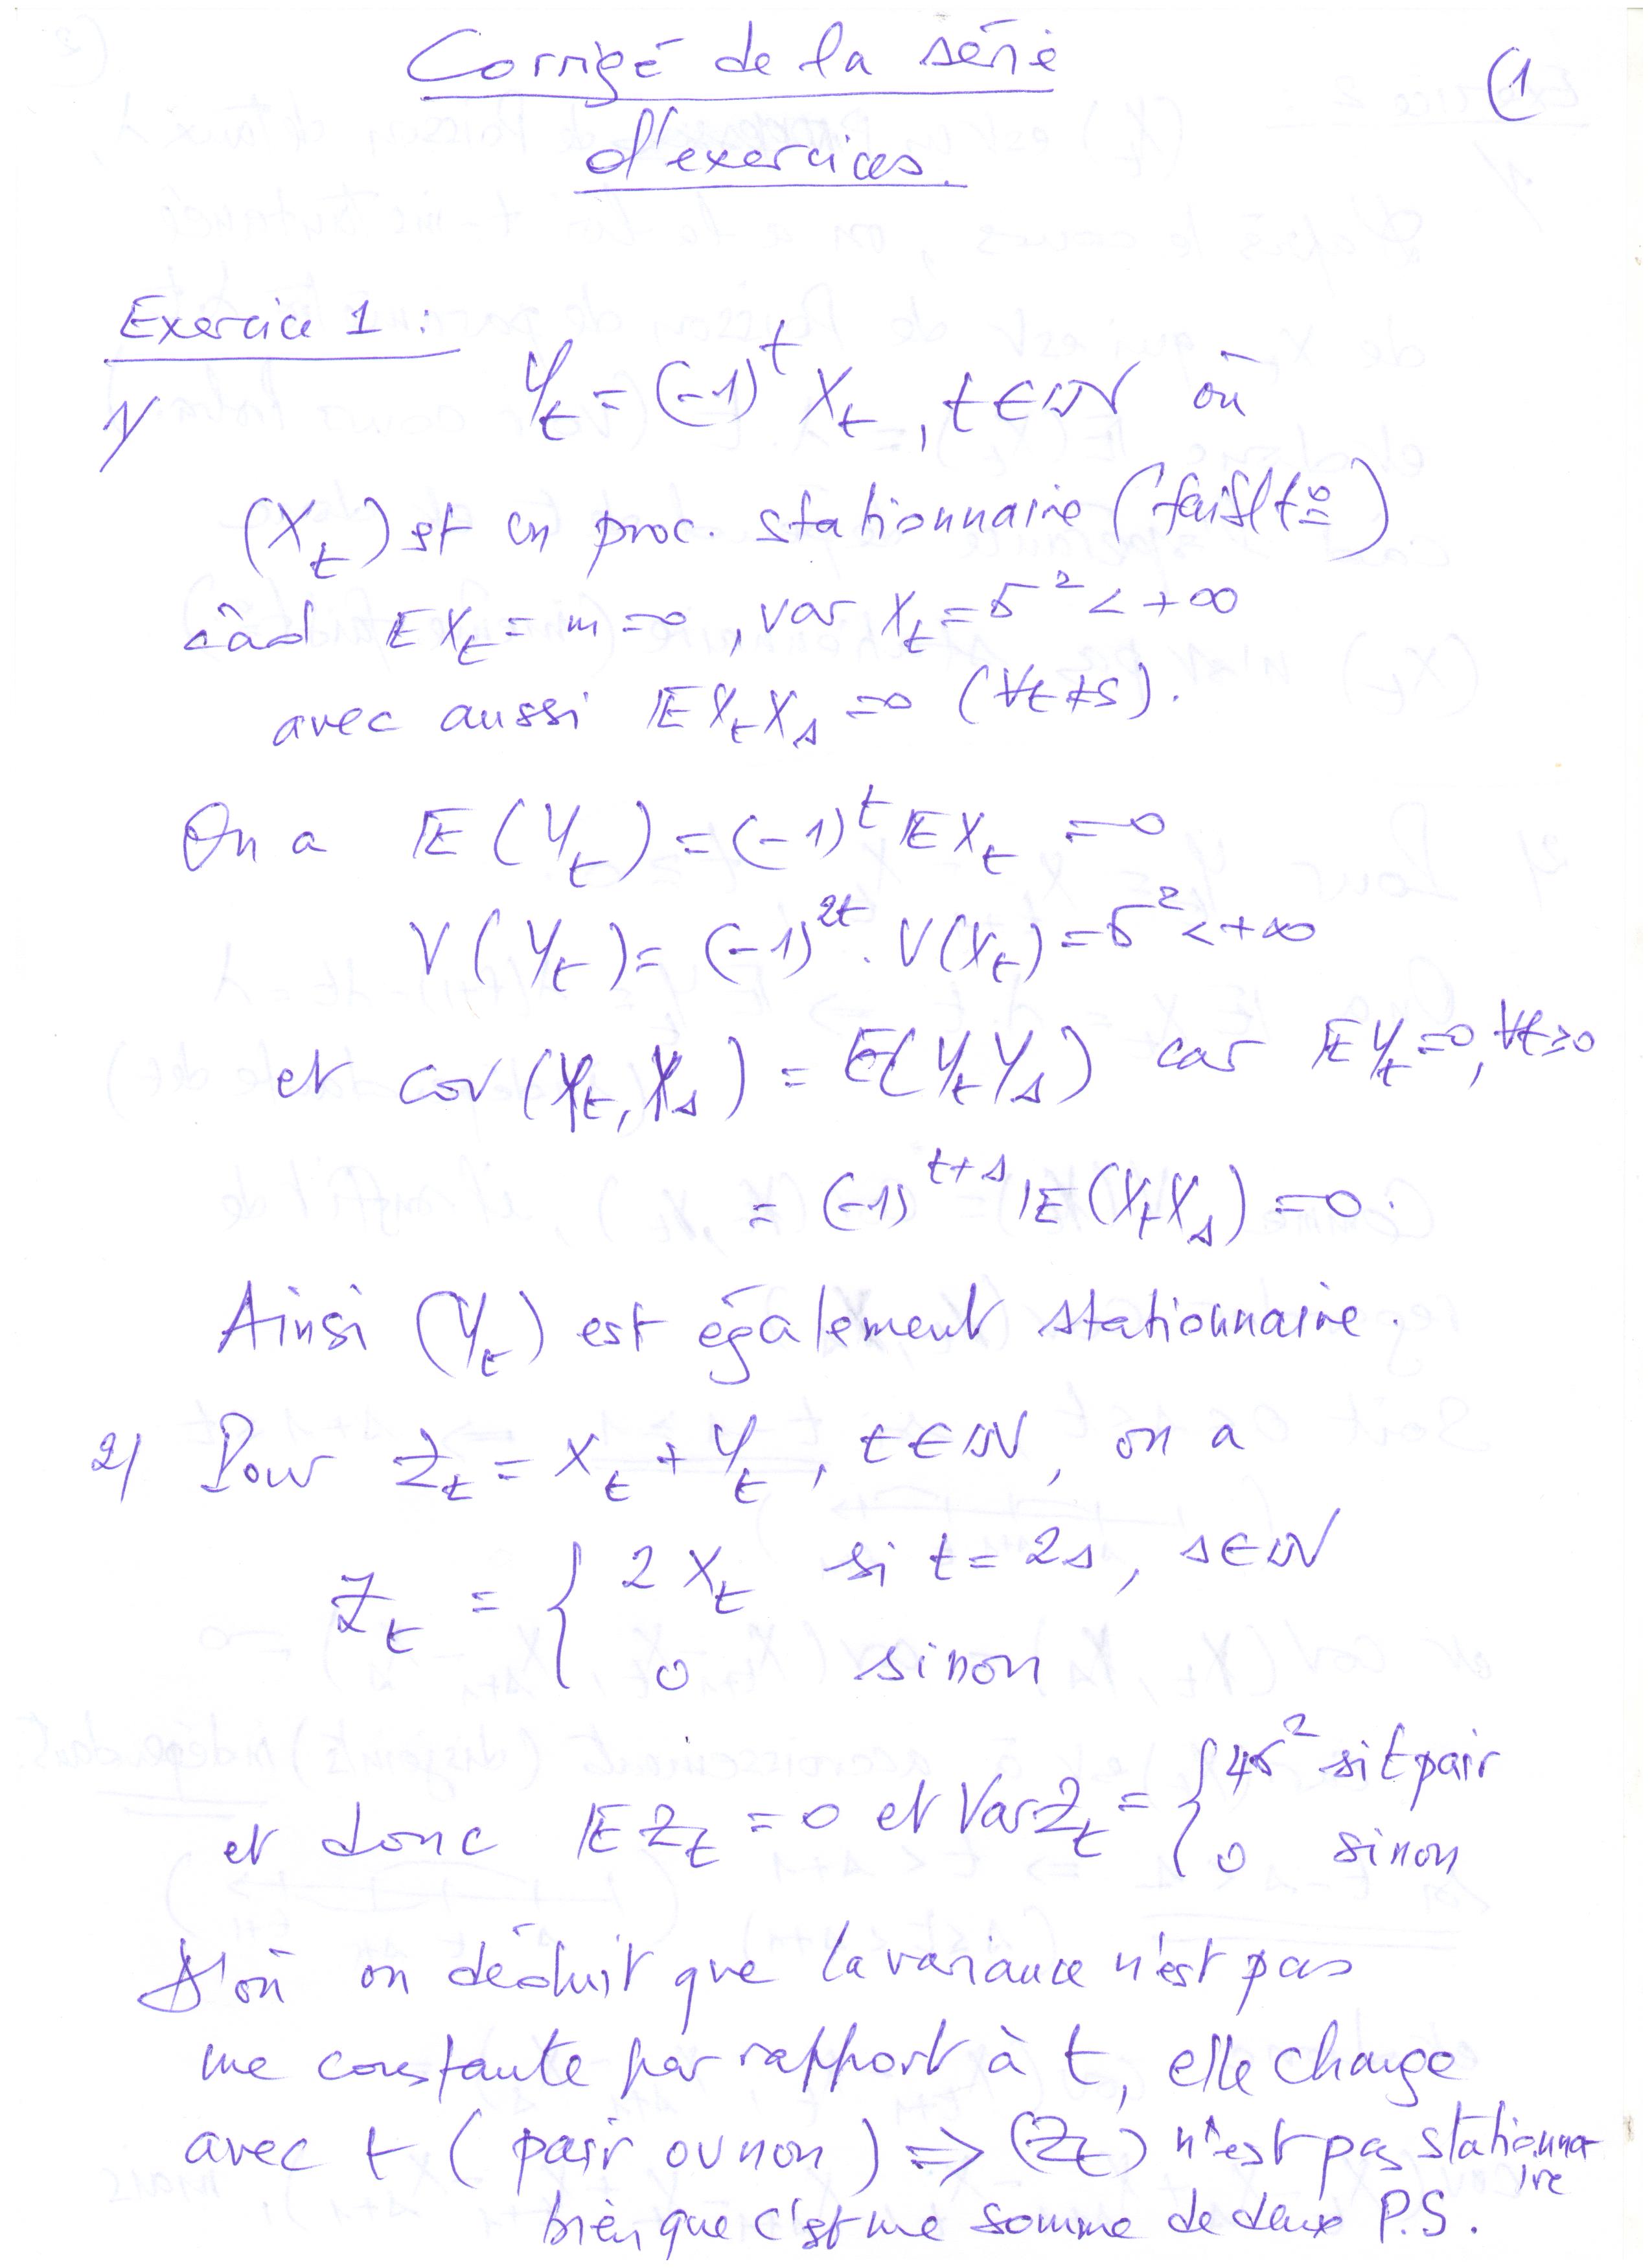 Corrigé de la série
d'exercices.
(1
Exercice 1 :
1/ Y_t = (-1)^t X_t, t ∈ ℕ où
(X_t) est un proc. stationnaire (faiblt)
càd 𝔼X_t = m = 0, var X_t = σ² < +∞
avec aussi 𝔼X_tX_s = 0 (∀t ≠ s).
On a 𝔼(Y_t) = (-1)^t 𝔼X_t = 0
V(Y_t) = (-1)^{2t}. V(X_t) = σ² < +∞
et cov(Y_t, Y_s) = 𝔼(Y_tY_s) car 𝔼Y_t = 0, ∀t ≥ 0
= (-1)^{t+s} 𝔼(X_tX_s) = 0.
Ainsi (Y_t) est également stationnaire.
2/ Pour Z_t = X_t + Y_t, t ∈ ℕ, on a
Z_t = { 2X_t si t = 2s, s ∈ ℕ
0 sinon
et donc 𝔼Z_t = 0 et Var Z_t = { 4σ² si t pair
0 sinon
D'où on déduit que la variance n'est pas
une constante par rapport à t, elle change
avec t (pair ou non) ⇒ (Z_t) n'est pas stationna-
ire
bien que c'est une somme de deux P.S.